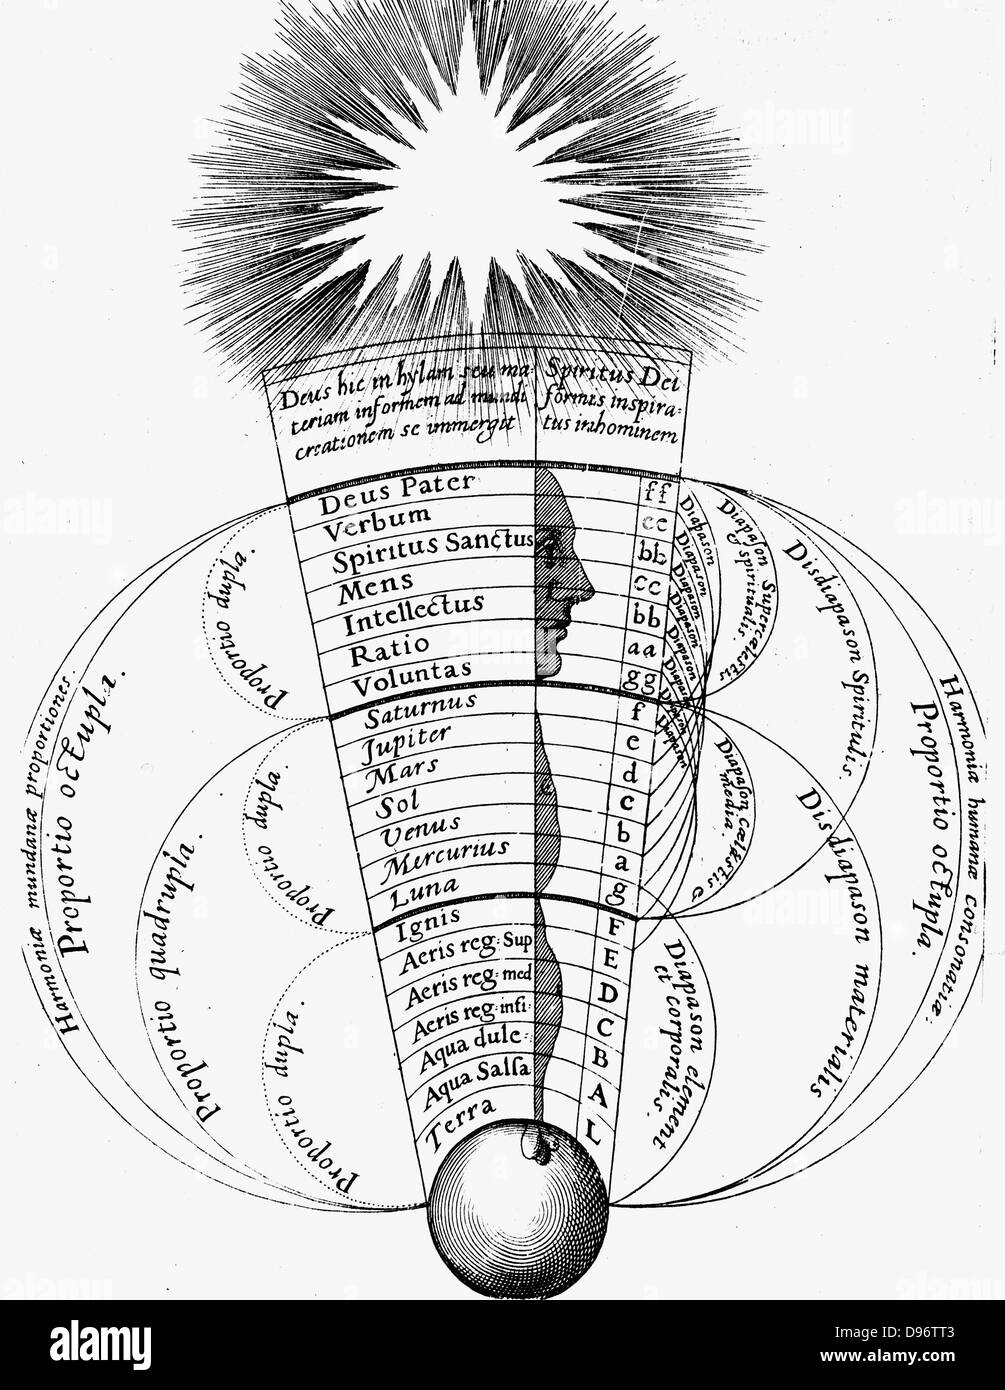 Deus hic in hylam seu ma-
teriam informem ad mundi
creationem se immergit
Spiritus Dei
formis inspira-
tus in hominem
Deus Pater
Verbum
Spiritus Sanctus
Mens
Intellectus
Ratio
Voluntas
Saturnus
Jupiter
Mars
Sol
Venus
Mercurius
Luna
Ignis
Aeris reg: Sup
Aeris reg: med
Aeris reg: infi:
Aqua dulc:
Aqua Salsa
Terra
ff
ee
bb
cc
bb
aa
gg
f
e
d
c
b
a
g
F
E
D
C
B
A
L
Harmoniæ mundanæ proportiones.
Proportio octupla.
Proportio quadrupla.
Proportio dupla.
Proportio dupla.
Proportio dupla.
Diapason
Diapason
Diapason
Diapason
Diapason
Diapason
Diapason
Diapason
Diapason Supercælestis
& spiritualis
Disdiapason Spiritulis.
Diapason cælestis e
media
Disdiapason materialis
Diapason element
et corporalis.
Proportio octupla.
Harmoniæ humanæ consonatiæ:
alamy
alamy
D96TT3
www.alamy.com